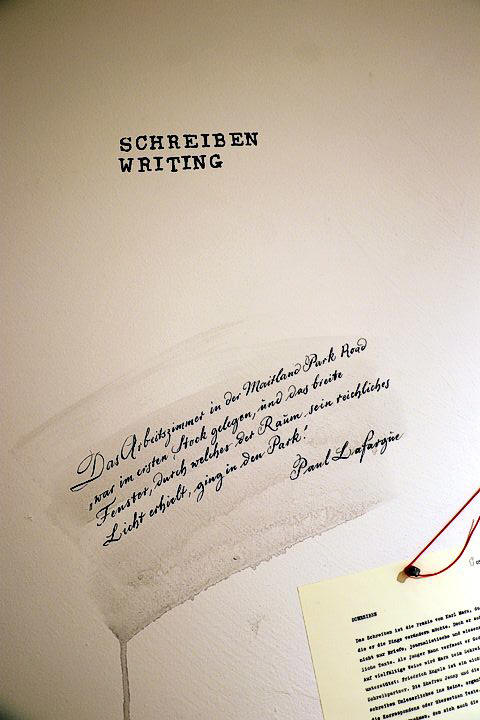 SCHREIBEN
WRITING
Das Arbeitszimmer in der Maitland Park Road
war im ersten Stock gelegen, und das breite
Fenster, durch welches der Raum sein reichliches
Licht erhielt, ging in den Park!
Paul Lafargue
SCHREIBEN
Das Schreiben ist die Praxis von Karl Marx,
die er die Dinge verändern möchte. Doch er
nicht nur Briefe, journalistische und
liche Texte. Als junger Mann verfasst er
Auf vielfältige Weise wird Marx beim
unterstützt: Friedrich Engels ist ein
Schreibpartner. Die Ehefrau Jenny und die
schreiben Unleserliches ins Reine,
die Korrespondenz oder übersetzen Texte.